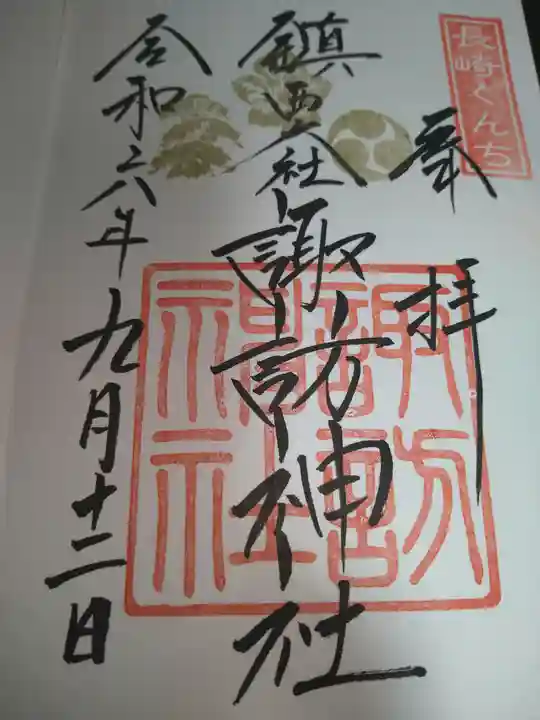 長崎くんち
奉拝
鎮西大社
諏訪神社
令和六年九月十二日